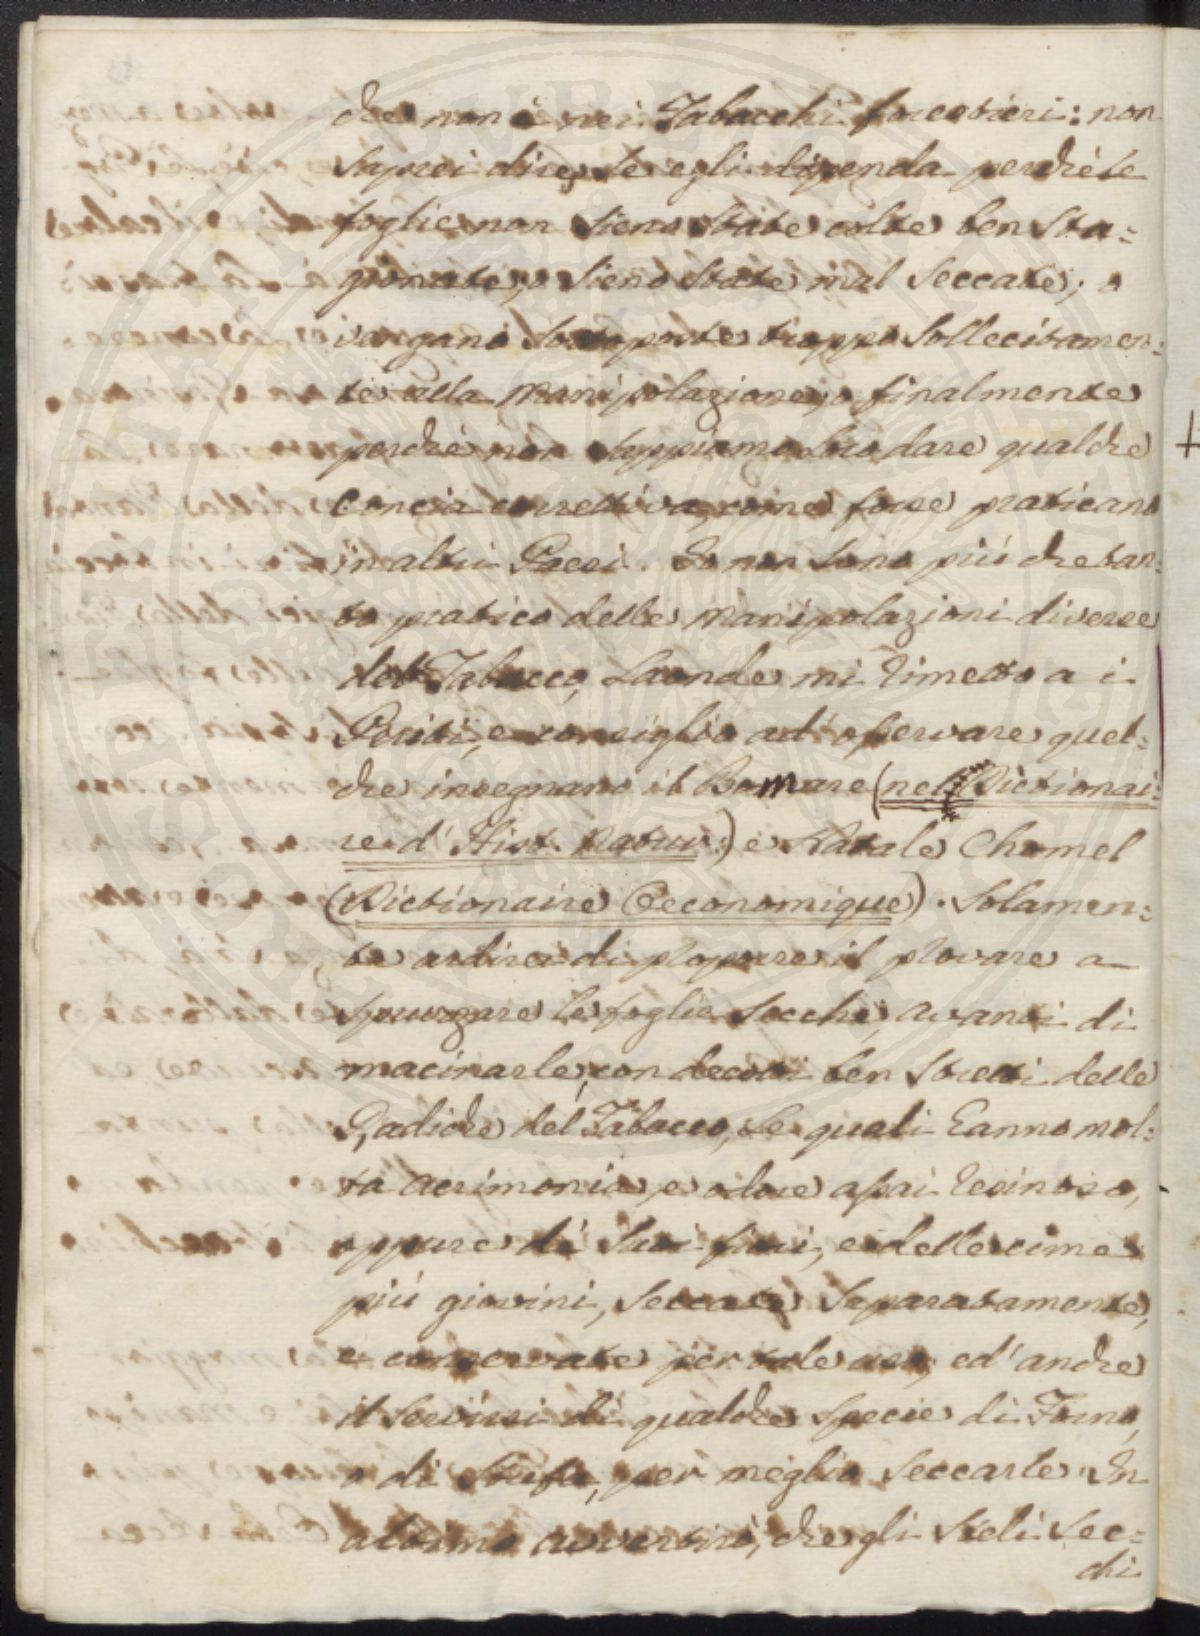 che non è nei Tabacchi forestieri: non
saprei dire, se egli dipenda perchè le
foglie non sieno state colte ben sta=
gionate, o sieno state mal seccate; o
vengano sottoposte troppo sollecitamen=
te alla manipolazione, o finalmente
perchè non sappiamo loro dare qualche
concia correttiva, come forse praticano
in altri Paesi. Io non sono più che tan=
to pratico delle manipolazioni diverse
del Tabacco, laonde mi rimetto a i
Periti, e consiglio ad osservare quel=
che insegnano il Bomare (nel Dictionai=
re d'Hist. Natur.) e Natale Chomel
(Dictionaire Oeconomique). Solamen=
te ardirei di proporre il provare a
spruzzare le foglie secche, avanti di
macinarle, con decotti ben stretti delle
Radiche del Tabacco, le quali hanno mol=
ta acrimonia, e odore assai resinoso,
oppure di suoi fiori, e delle cime
più giovini, seccate separatamente,
e conservate per tale uso; ed anche
il servirsi di qualche specie di Forno,
o di Stufa, per meglio seccarle. In
ultimo avvertirò, che gli steli sec=
chi